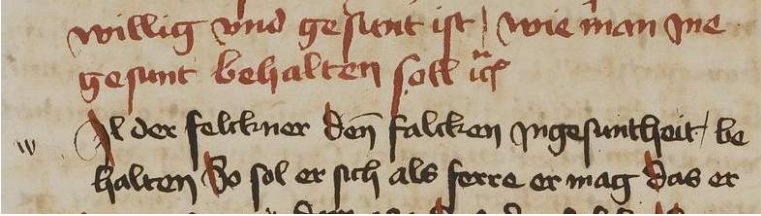 willig vnd gesunt ist / wie man jne
gesunt behalten soll ꝛc
w Il der felckner den̄ falcken jngesuntheit / be
halten So sol er sich als ferre er mag das er